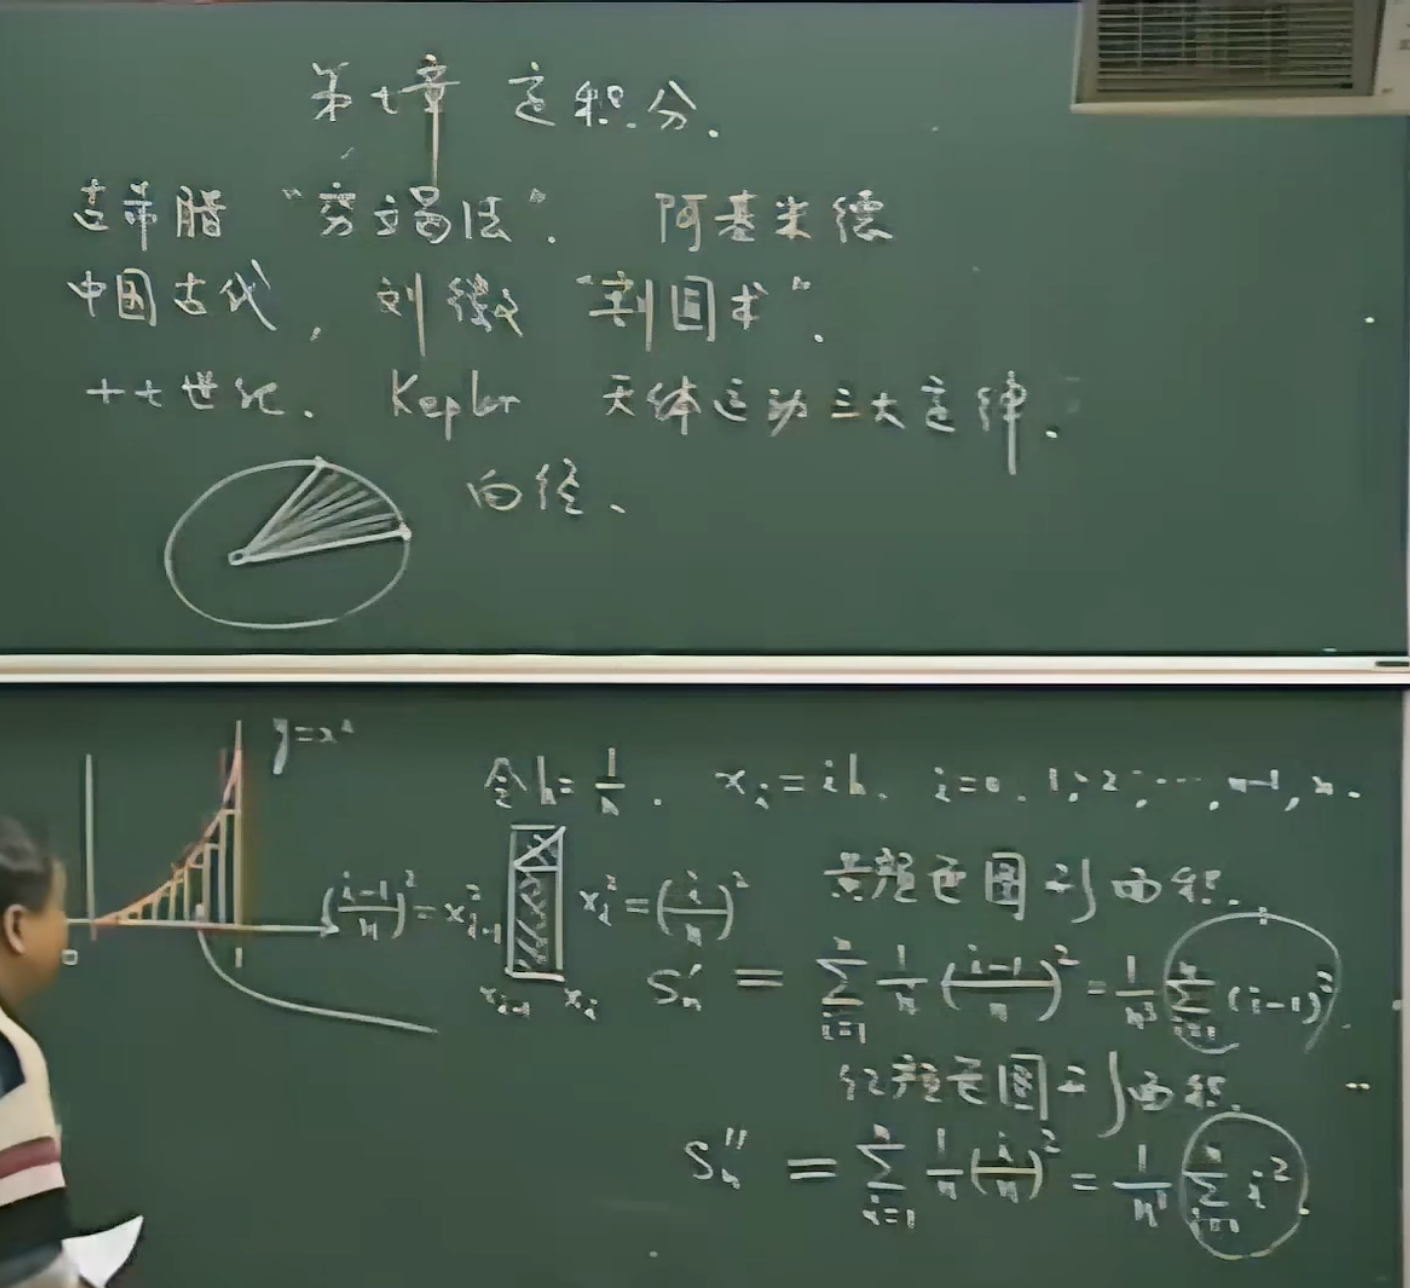 第七章 定积分.
古希腊 “穷竭法”. 阿基米德
中国古代, 刘徽 “割圆术”.
十七世纪. Kepler 天体运动三大定律.
向径、
y=x²
令h=1/n. x_i=ih. i=0, 1, 2, …, n-1, n.
0
1
((i-1)/n)²=x²_{i-1}
x_i²=(i/n)²
x_{i-1} x_i
黄颜色图形面积.
S_n' = ∑_{i=1}^{n} 1/n ((i-1)/n)² = 1/n³ ∑_{i=1}^{n} (i-1)²
红颜色图形面积.
S_n'' = ∑_{i=1}^{n} 1/n (i/n)² = 1/n³ ∑_{i=1}^{n} i²